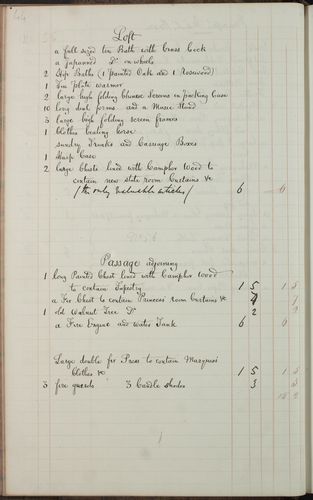 Loft
a full sized tin Bath with brass Cock
a japanned Do on wheels
2 Hip Baths (1 painted Oak and 1 Rosewood)
1 Tin plate warmer
2 large high folding Chinese Screens in packing Case
10 long deal forms and a Music Stand
3 large high folding screen frames
1 Clothes horse
sundry Trunks and Carriage Boxes
1 Case
2 large Chests lined with Camphor Wood to
contain new State room Curtains &c
(the only valuable articles) 6 6
Passage adjoining
1 long Painted Chest lined with Camphor Wood
to contain Tapestry 1 5 1 5
a Fir Chest to contain Princess' room Curtains &c 7
1 old Walnut Tree Do 2 2
a Fire Engine and Water Tank 6 6
Large double fir Press to contain Marquess'
Clothes &c 1 5 1 5
3 fire guards 3 Candle shades 3 3